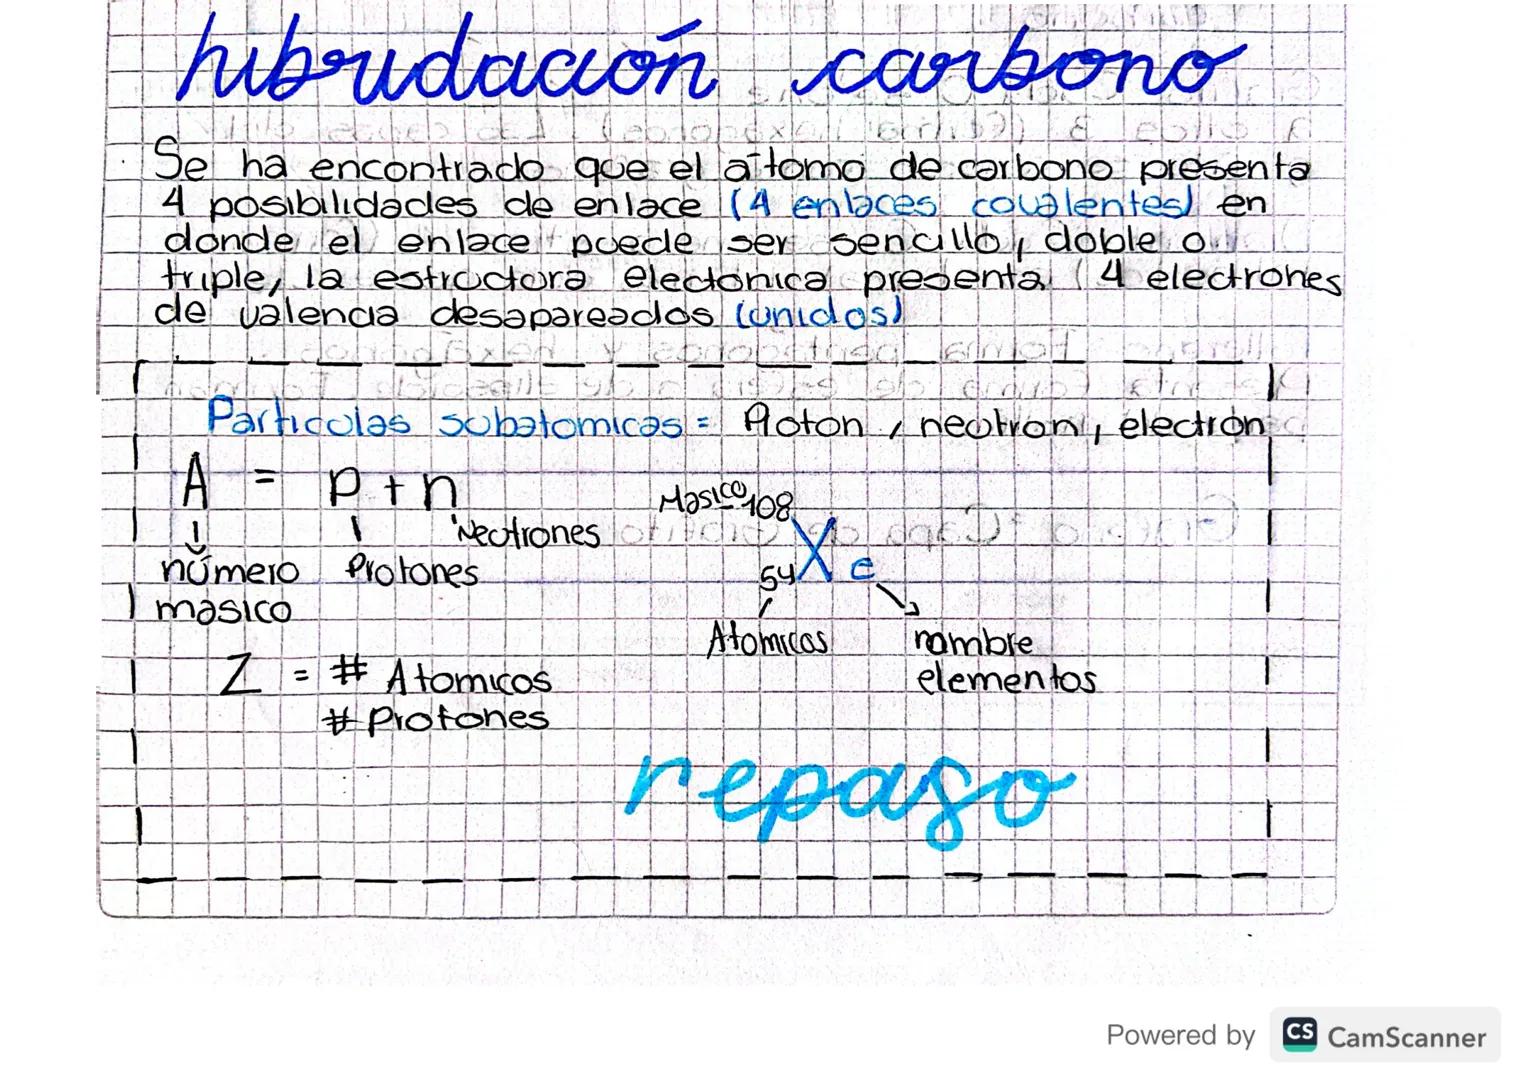 hibridación carbono
Se ha encontrado que el átomo de carbono presenta
4 posibilidades de enlace (4 enlaces covalentes) en
donde el enlace puede ser sencillo, doble o
triple, la estructura electonica presenta 4 electrones
de valencia desapareados (unidos)
Particulas subatomicas = Proton, neutron, electrón
A = p + n
Neutrones
número Protones
masico
Masico 108
54 Xe
Atomicas nombre
elementos
Z = # Atomicos
# Protones
repaso
Powered by CS CamScanner